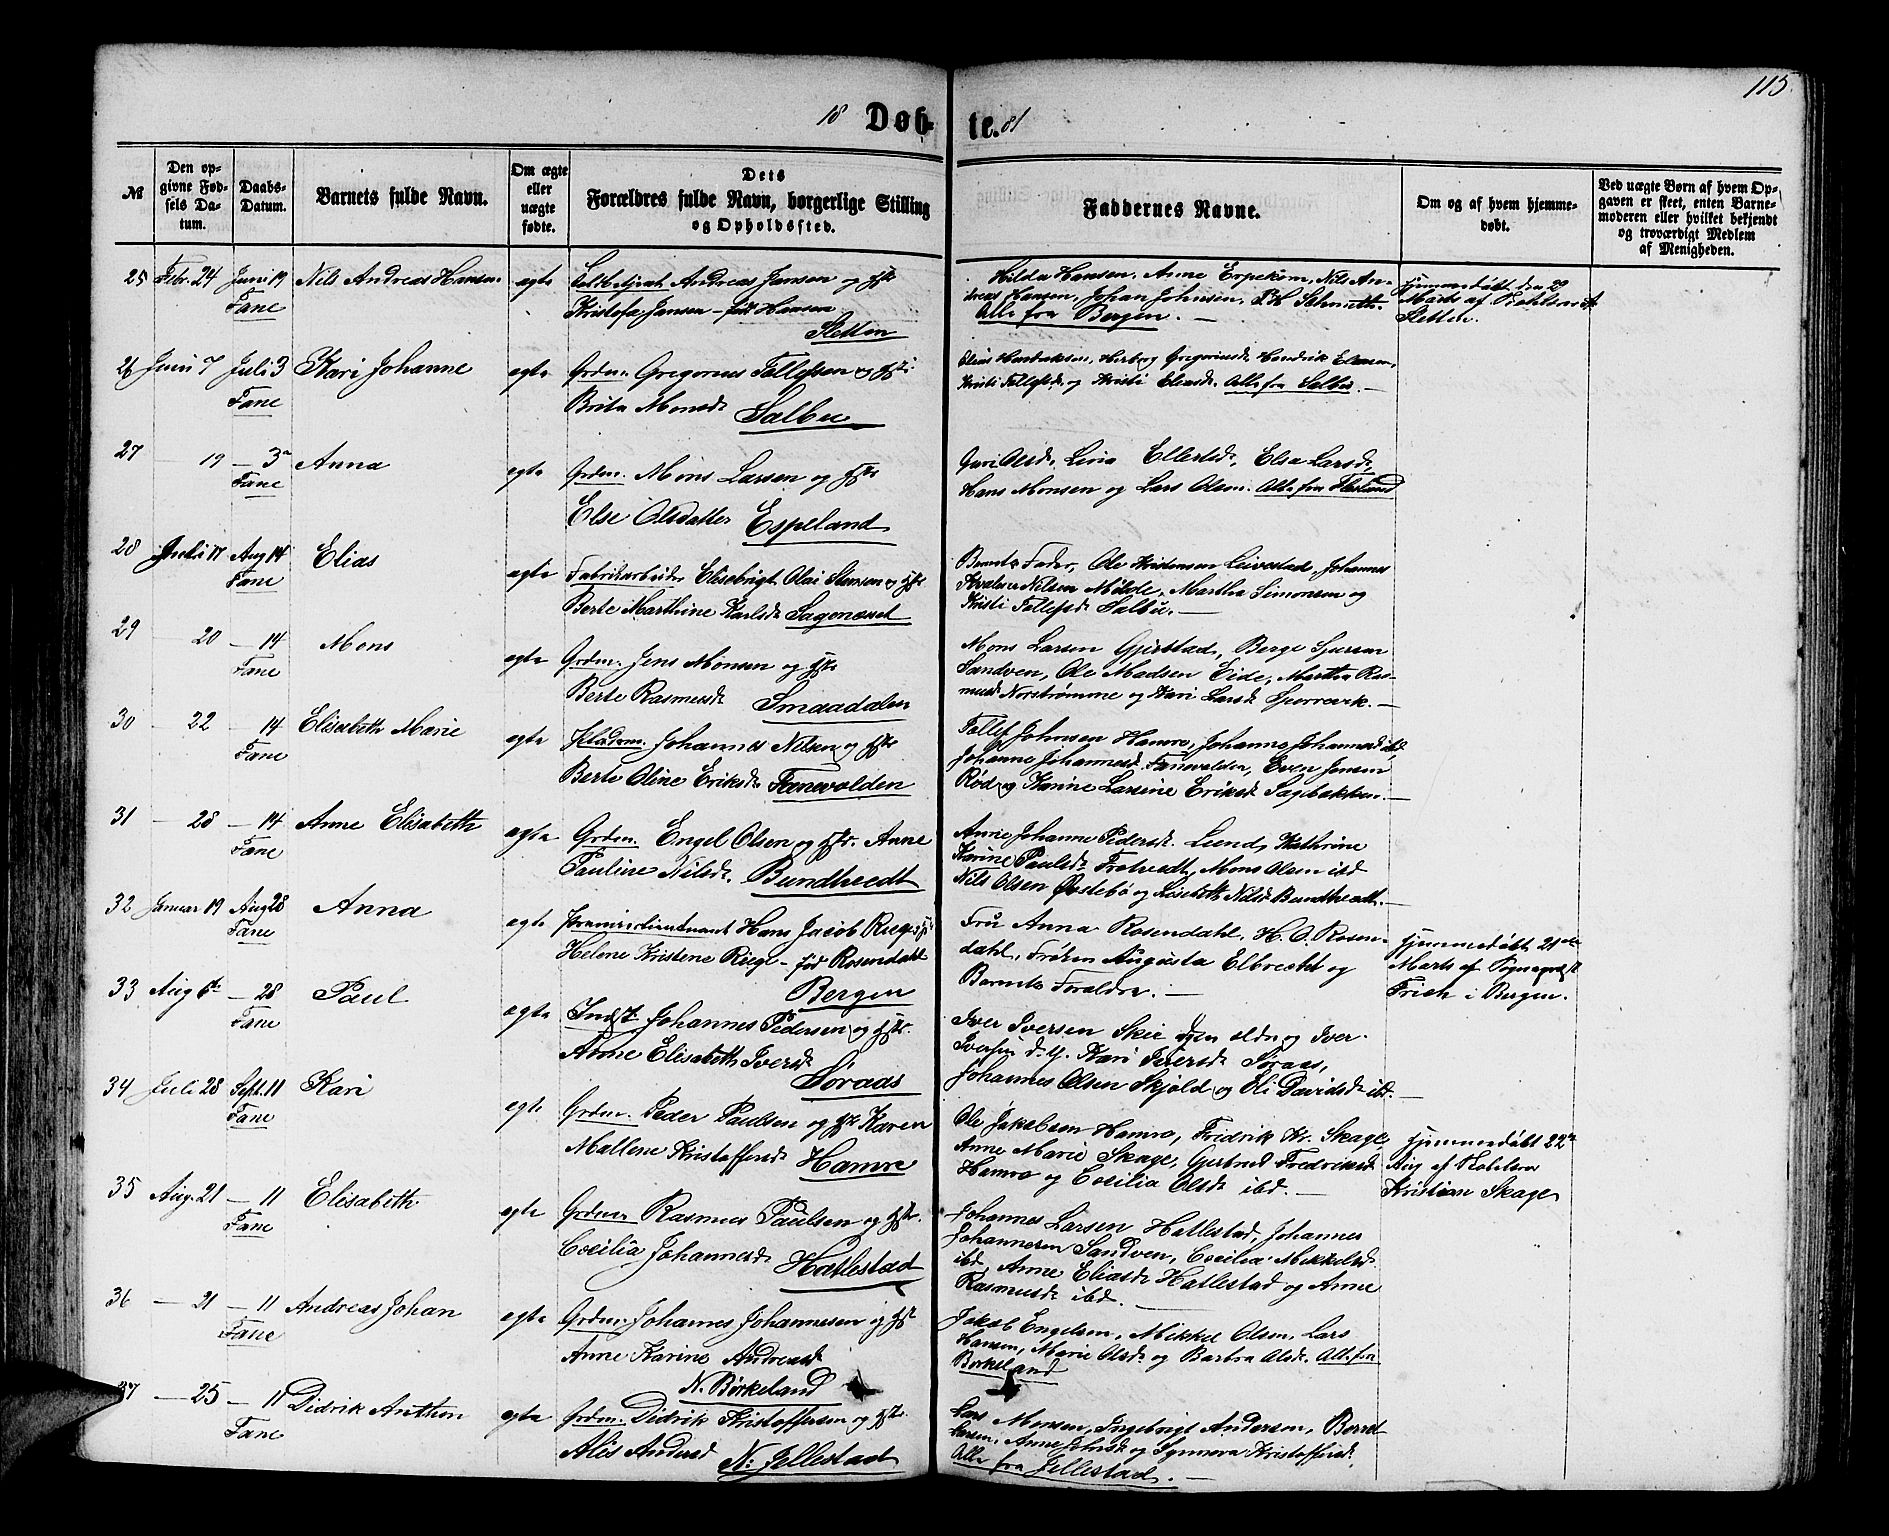 115
18 Døb- te. 81
№
Den opgivne Fødsels Datum.
Daabs-Datum.
Barnets fulde Navn.
Om ægte eller uægte fødte.
Dets Forældres fulde Navn, borgerlige Stilling og Opholdssted.
Faddernes Navne.
Om og af hvem hjemmedøbt.
Ved uægte Børn af hvem Opgaven er skeet, enten Barnemoderen eller hvilket bekjendt og troværdigt Medlem af Menigheden.
25 Febr. 24 Juni 19 Nils Andreas Hansen. egte Andreas Jansen og Hst
Fane Kristofa Jansen - fød Hansen
Sletten
Hilda Hansen, Anne Erpekom, Nils An-
dreas Hansen, Johan Johnsen,
Alle fra Bergen. —
Hjemmedøbt den 29
Marts af
Sletten.
26 Juni 7 Juli 3 Kari Johanne egte Grdm. Gregorius Tollefsen og Hst:
Fane Brita Monsdr Salbu
Elias Henriksen, Herborg Gregoriusdr Hendrik Eliasen,
Kristi Tollefsdr og Kristi Eliasdr. Alle fra Salbu. —
27 — 19 — 3 Anna egte Grdm. Mons Larsen og Hstr
Fane Else Olsdatter Espeland
Guri Olsdr, Lina Ellertsdr, Elsa Larsdr,
Hans Monsen og Lars Olsen. Alle fra Flesland
28 Juli 17 Aug 14 Elias egte Fabrikarbeider Elisebrigt Olai Stensen og Hstr
Fane Berte Marthine Karlsdr Sagonæset
Barnets Fader, Ole Kristensen Leivestad, Johannes
Nilsen Milde, Martha Simonsen og
Kristi Tollefsdr Salbu. —
29 — 20 — 14 Mons egte Grdm. Jens Monsen og Hstr
Fane Berte Rasmusdr Smaadalen
Mons Larsen Gjerstad, Berge
Sandven, Ole Madsen Eide, Martha Ras-
musdr Norstrømme og Kari Larsd Sporrevik. —
30 — 22 — 14 Elisabeth Marie egte Pladsm. Johannes Nilsen og Hstr
Fane Berte Oline Eriksdr Fanevolden
Tollef Johnsen Hamre, Johanne Johannesd ibd,
Johanne Johannesdr Fanevolden, Even Jensen
Rød og Karine Larsine Eriksd Sagbakken. —
31 — 28 — 14 Anne Elisabeth egte Grdm. Engel Olsen og Hstr. Anne
Fane Pauline Nilsdr. Bundtvedt
Anne Johanne Pedersdr. Lund, Kathrine
Karine Paulsdr Tratvedt, Mons Olsen ibd
Nils Olsen Østebø og Lisebeth Nilsd Bundtvedt. —
32 Januar 19 Aug 28 Anna egte Premierlieutnant Hans Jacob Riege og Hst
Fane Helene Kristene Riege - fød Rosendahl
Bergen
Fru Anna Rosendahl, H. O. Rosen-
dahl, Frøken Augusta Elbrecht og
Barnets Forældre. —
Hjemmedøbt 21de
Marts af Sogneprest
Frich i Bergen.
33 Aug 6te — 28 Paul egte Indst. Johannes Pedersen og Hstr.
Fane Anne Elisabeth Iversdr
Søraas
Iver Iversen Skeie den eldre og Iver
Iversen d. y. Kari Iversdr Søraas,
Johannes Olsen Skjold og Eli Davidsdr ibd. —
34 Juli 28 Sept. 11 Kari egte Grdm. Peder Paulsen og Hstr Karen
Fane Mallene Kristoffersdr Hamre
Ole Jakobsen Hamre, Fridrik Kr. Skage,
Anne Marie Skage, Gertrud Fredriksdr
Hamre og Cecilia Olsdr ibd. —
Hjemmedøbt 22de
Aug af
Kristian Skage
35 Aug. 21 — 11 Elisabeth. egte Grdm. Rasmus Paulsen og Hstr.
Fane Cecilia Johannesdr Hatlestad
Johannes Larsen Hatlestad, Johannes
Johannesen Sandven, Cecilia Mikkelsd
ibd, Anne Eliasdr Hatlestad og Anne
Rasmusdr ibd.
36 — 21 — 11 Andreas Johan egte Grdm. Johannes Johannesen og Hst
Fane Anne Karine Andreasdr
N. Børkeland
Jakob Engelsen, Mikkel Olsen, Lars
Hansen, Marie Olsdr og Barbra Olsdr. Alle fra
Birkeland
37 — 25 — 11 Didrik Anthon egte Grdm. Didrik Kristoffersen og Hstr.
Fane Alis Andersd N. Jellestad
Lars Monsen, Ingebrigt Andersen, Berret
Larsen, Anne Johnsdr og Synneva Kristoffersdr.
Alle fra Jellestad. —